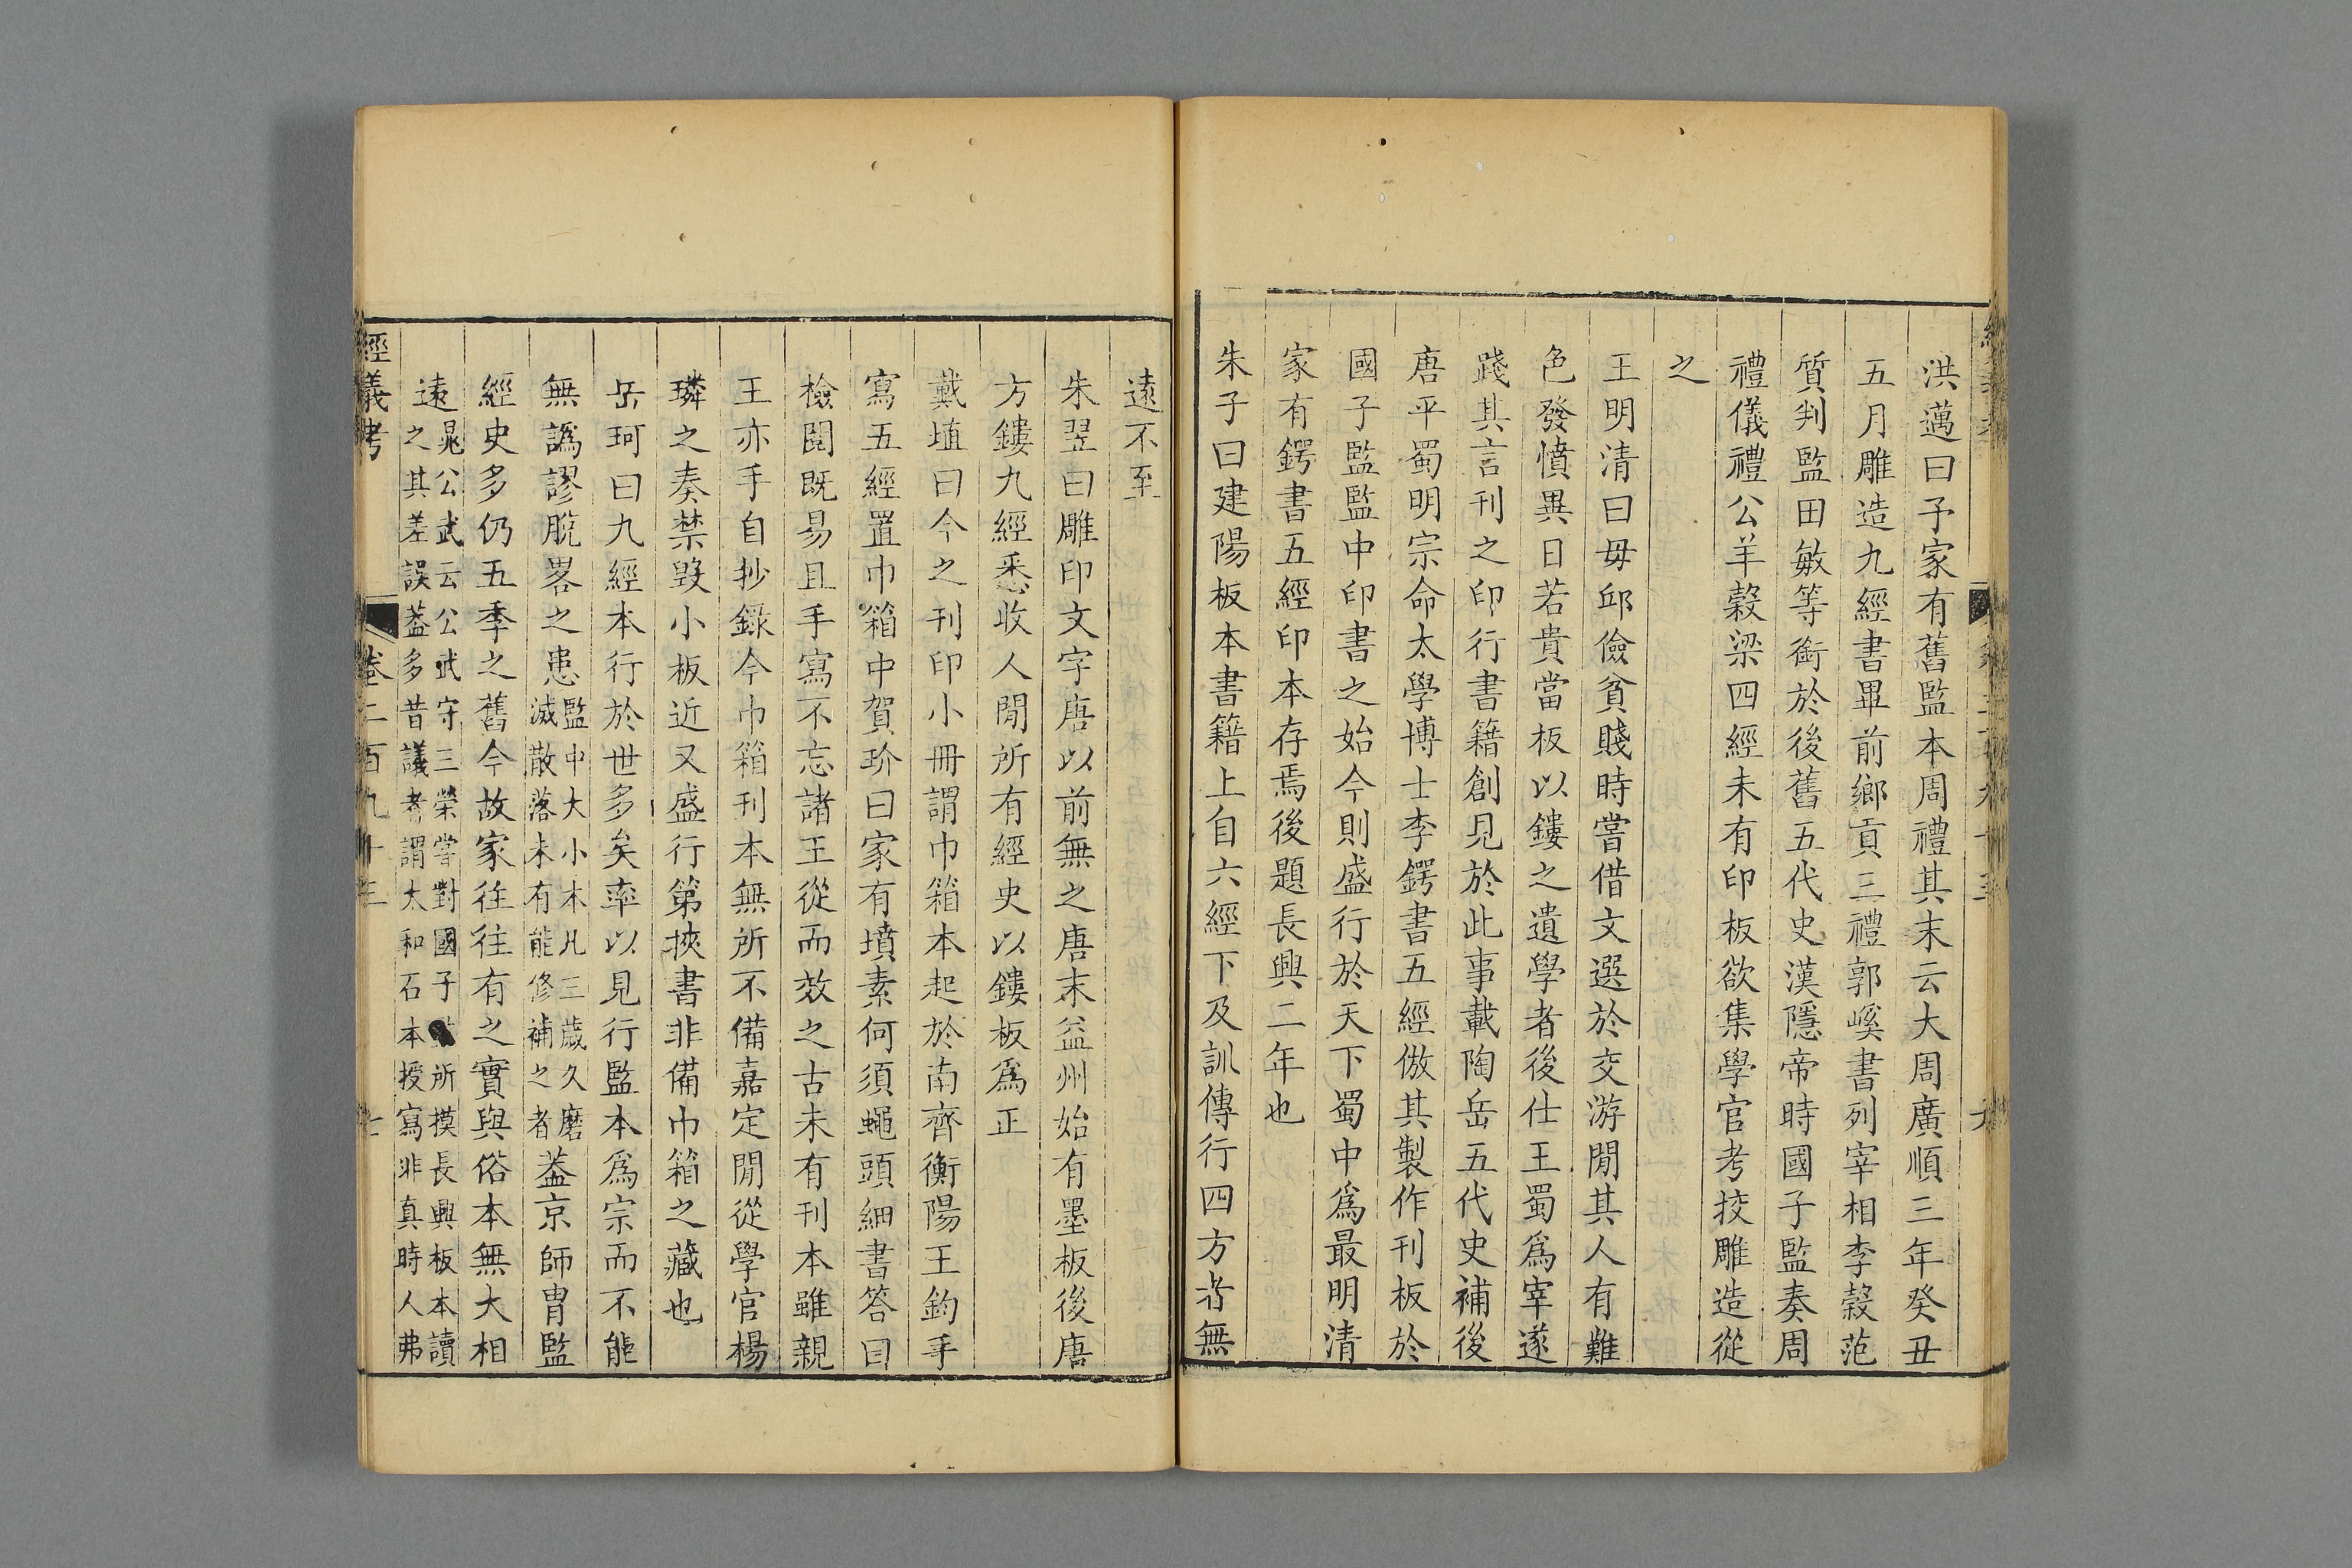 洪邁曰予家有舊監本周禮其末云大周廣順三年癸丑
五月雕造九經書畢前鄉貢三禮郭嵠書列宰相李榖范
質判監田敏等銜於後舊五代史漢隱帝時國子監奏周
禮儀禮公羊穀梁四經未有印板欲集學官考挍雕造從
之
王明清曰毋邱儉貧賤時嘗借文選於交游閒其人有難
色發憤異日若貴當板以鏤之遺學者後仕王蜀爲宰遂
踐其言刊之印行書籍創見於此事載陶岳五代史補後
唐平蜀明宗命太學博士李鍔書五經倣其製作刊板於
國子監監中印書之始今則盛行於天下蜀中爲最明清
家有鍔書五經印本存焉後題長興二年也
朱子曰建陽板本書籍上自六經下及訓傳行四方者無
遠不至
朱翌曰雕印文字唐以前無之唐末益州始有墨板後唐
方鏤九經悉收人閒所有經史以鏤板爲正
戴埴曰今之刊印小冊謂巾箱本起於南齊衡陽王鈞手
寫五經置巾箱中賀玠曰家有墳素何須蠅頭細書答曰
檢閱旣易且手寫不忘諸王從而效之古未有刊本雖親
王亦手自抄錄今巾箱刊本無所不備嘉定閒從學官楊
璘之奏禁毀小板近又盛行第挾書非備巾箱之藏也
岳珂曰九經本行於世多矣率以見行監本爲宗而不能
無譌謬脫畧之患監中大小木凡三歲久磨滅散落未有能修補之者葢京師胄監
經史多仍五季之舊今故家往往有之實與俗本無大相
遠晁公武云公武守三榮嘗對國子所摸長興板本讀之其差誤葢多昔議者謂太和石本授寫非真時人弗
經義考 卷二百九十三 七